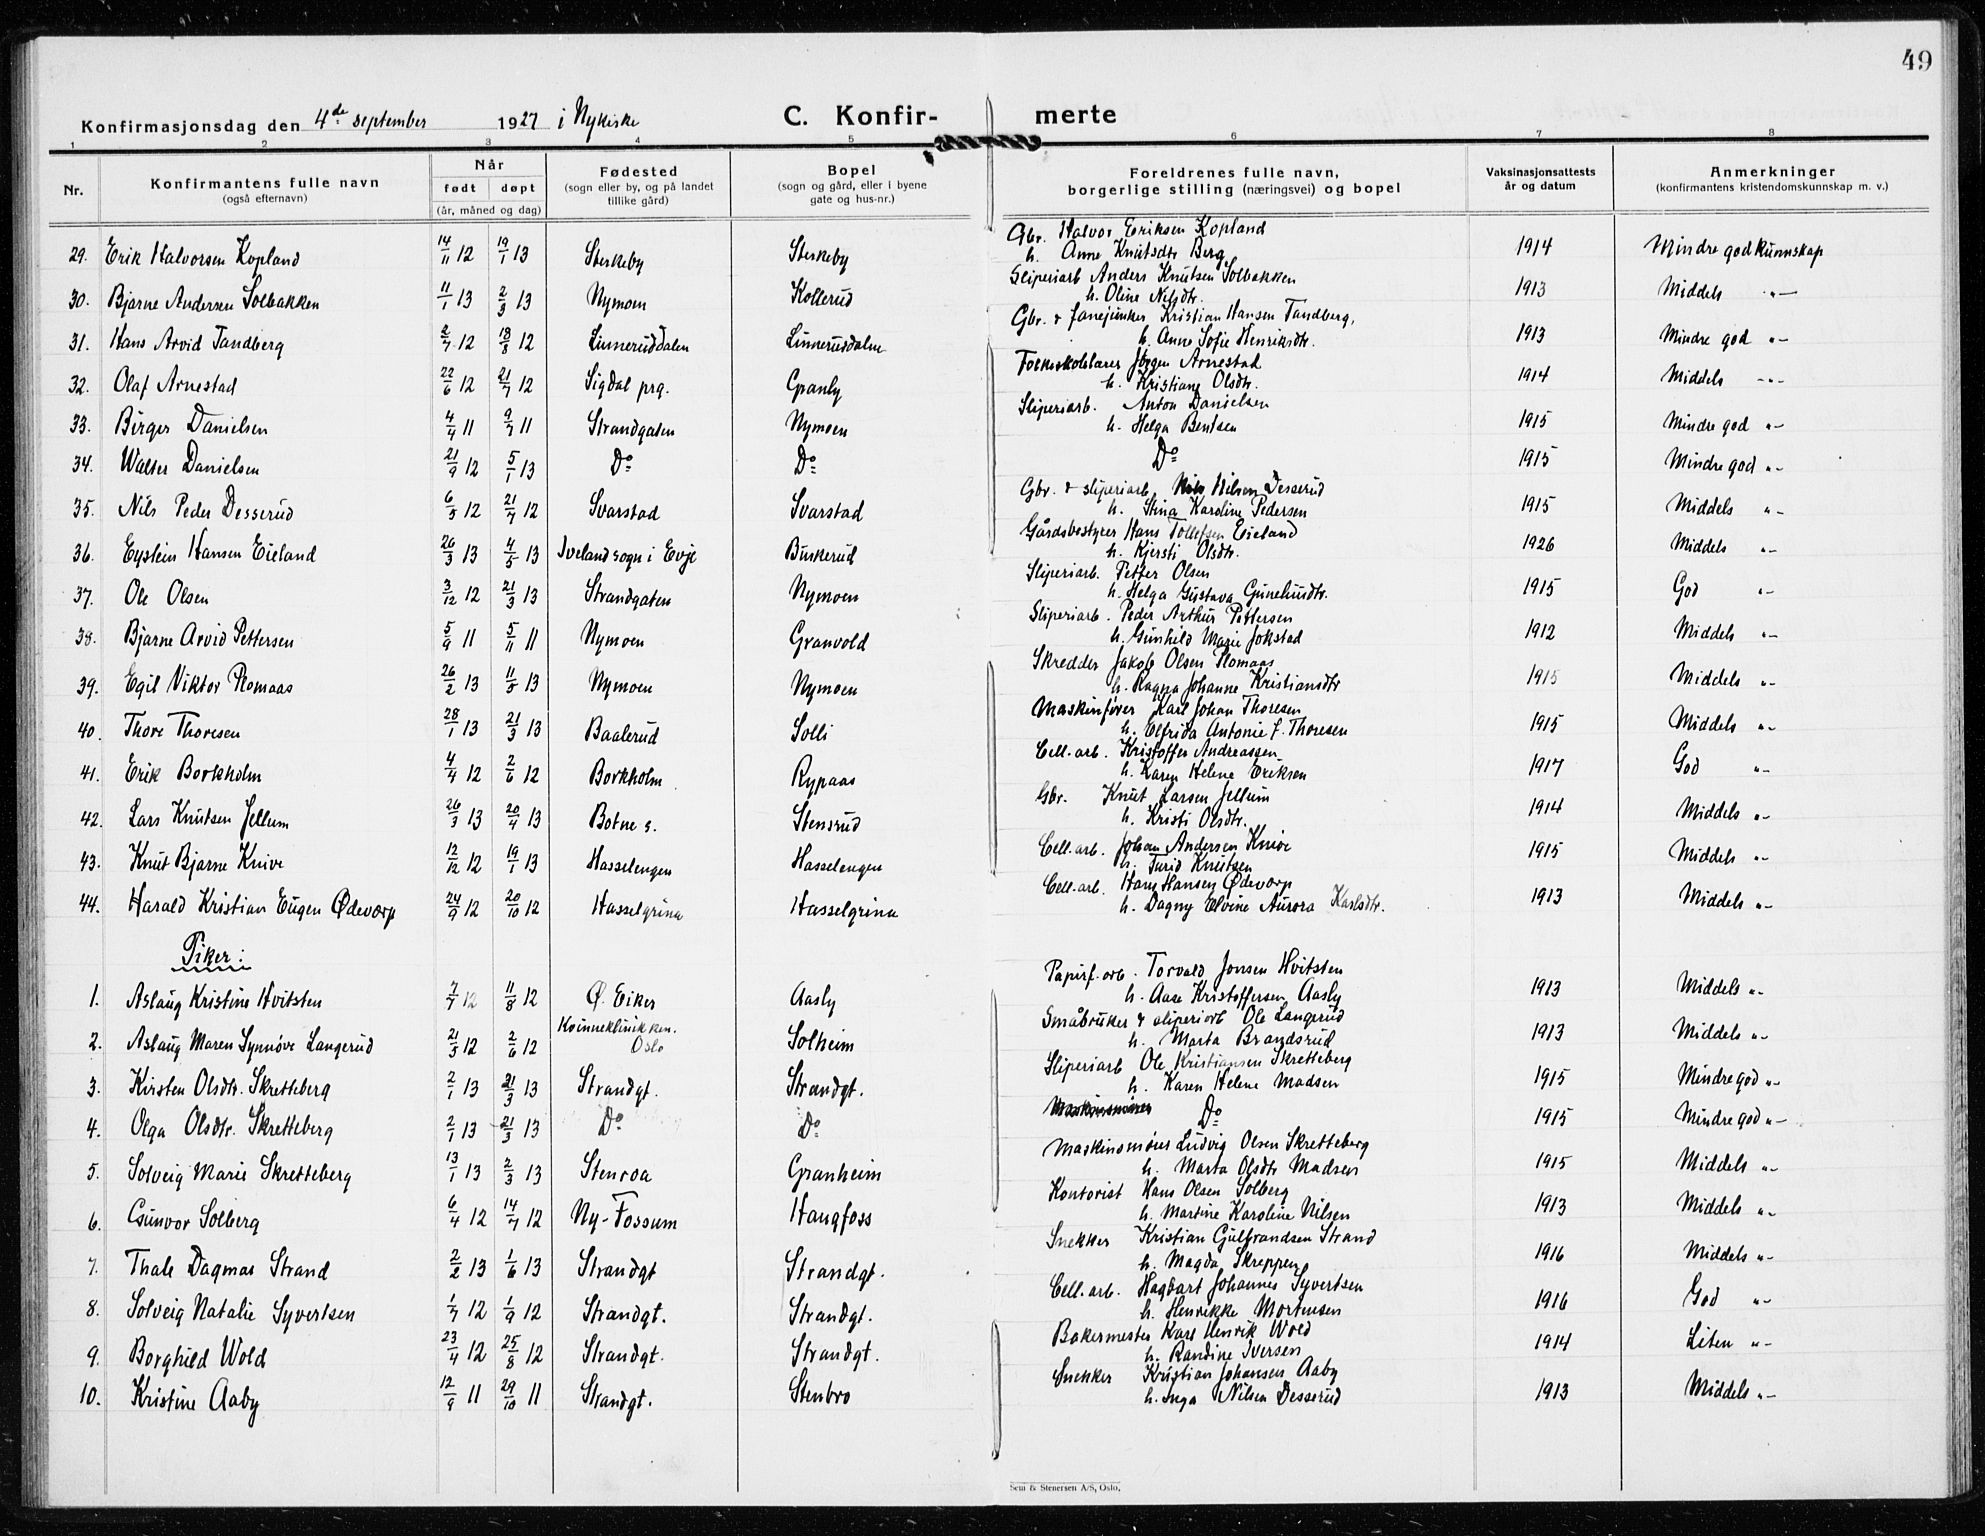 49
Konfirmasjonsdag den 4de september 1927 i Nykirke C. Konfir- merte
1 2 3 4 5 6 7 8
Nr. Konfirmantens fulle navn (også efternavn) Når født døpt (år, måned og dag) Fødested (sogn eller by, og på landet tillike gård) Bopel (sogn og gård, eller i byene gate og hus-nr.) Foreldrenes fulle navn, borgerlige stilling (næringsvei) og bopel Vaksinasjonsattests år og datum Anmerkninger (konfirmantens kristendomskunnskap m. v.)
29. Erik Halvorsen Kopland 14/11 12 19/1 13 Sterkeby Sterkeby Gbr. Halvor Eriksen Kopland 1914 Mindre god kunnskap
h. Anne Knutsdtr Berg
30. Bjarne Andersen Solbakken 11/1 13 2/3 13 Nymoen Kollerud Sliperiarb Anders Knutsen Solbakken 1913 Middels -"-
h. Oline Nilsdtr.
31. Hans Arvid Tandberg 2/7 12 18/8 12 Linneruddalen Linneruddalen Gbr. & fanejunker Kristian Hansen Tandberg, 1913 Mindre god "-
h. Anne Sofie Henriksdtr.
32. Olaf Arnestad 22/6 12 21/7 12 Sigdal prg. Granly Folkeskolelærer Jørgen Arnestad 1914 Middels -"-
h. Kristiane Olsdtr.
33. Birger Danielsen 4/4 11 9/7 11 Strandgaten Nymoen Sliperiarb. Anton Danielsen 1915 Mindre god "-
h. Helga Bentsen
34. Walter Danielsen 21/9 12 5/1 13 Do Do Do 1915 Mindre god "-
35. Nils Peder Desserud 6/5 12 21/7 12 Svarstad Svarstad Gbr. & sliperiarb Nils Nilsen Desserud 1915 Middels "-
h. Stina Karoline Pedersen
36. Eystein Hansen Eieland 26/3 13 4/5 13 Iveland sogn i Evje Buskerud Gårdsbestyrer Hans Tollefsen Eieland 1926 Middels "-
h. Kjersti Olsdtr.
37. Ole Olsen 3/12 12 21/3 13 Strandgaten Nymoen Sliperiarb. Petter Olsen 1915 God "-
h. Helga Gustava Gunehuidtr.
38. Bjarne Arvid Pettersen 5/9 11 5/11 11 Nymoen Granvold Sliperiarb. Peder Arthur Pettersen 1912 Middels "-
h. Gunhild Marie Jokstad
39. Egil Viktor Romaas 26/2 13 11/5 13 Nymoen Nymoen Skredder Jakob Olsen Romaas 1915 Middels "-
h. Ragna Johanne Kristiansdtr
40. Thore Thoresen 28/1 13 21/3 13 Baalerud Solli Maskinfører Karl Johan Thoresen 1915 Middels "-
h. Elfrida Antonie f. Thoresen
41. Erik Borkholm 4/4 12 2/6 12 Borkholm Rypaas Cell.arb. Kristoffer Andreassen 1917 God "-
h. Karen Helene Eriksen
42. Lars Knutsen Jellum 26/3 13 20/4 13 Botne s. Stensrud Gbr. Knut Larsen Jellum 1914 Middels "-
h. Kristi Olsdtr.
43. Knut Bjarne Knive 12/12 12 19/1 13 Hasselengen Hasselengen Cell.arb. Johan Andersen Knive 1915 Middels "-
h. Turid Knutsen
44. Harald Kristian Eugen Ødevorp 24/9 12 20/10 12 Hasselgrina Hasselgrina Cell.arb. Hans Hansen Ødevorp 1913 Middels "-
h. Dagny Elvine Aurora Karlsdtr.
Piker:
1. Aslaug Kristine Hvitsten 7/7 12 11/8 12 Ø. Eiker Aasly Papirf.arb. Torvald Jonsen Hvitsten 1913 Middels "-
h. Aase Kristoffersen Aasly
2. Aslaug Maren Synnøve Langerud 21/5 12 2/6 12 Kvinneklinikken. Oslo Solheim Småbruker & sliperiarb Ole Langerud 1913 Middels "-
h. Marta Brandsrud
3. Kirsten Olsdtr. Skretteberg 2/1 13 21/3 13 Strandgt. Strandgt. Sliperiarb Ole Kristiansen Skretteberg 1915 Mindre god "-
h. Karen Helene Madsen
4. Olga Olsdtr. Skretteberg 2/1 13 21/3 13 Do Do Maskinsmører Do 1915 Mindre god "-
5. Solveig Marie Skretteberg 13/1 13 2/3 13 Stenroa Granheim Maskinsmører Ludvig Olsen Skretteberg 1915 Middels "-
h. Marta Olsdtr Madsen
6. Gunvor Solberg 6/4 12 14/7 12 Ny-Fossum Haugfoss Kontorist Hans Olsen Solberg 1913 Middels "-
h. Martine Karoline Nilsen
7. Thale Dagmar Strand 2/2 13 1/6 13 Strandgt Strandgt. Snekker Kristian Gulbrandsen Strand 1916 Middels "-
h. Magda Skreppen
8. Solveig Natalie Syvertsen 1/7 12 1/9 12 Strandgt. Strandgt. Cell.arb. Hagbart Johannes Syvertsen 1916 God "-
h. Henrikke Mortensen
9. Borghild Wold 23/4 12 25/8 12 Strandgt. Strandgt. Bakermester Karl Henrik Wold 1914 Liten "-
h. Randine Iversen
10. Kristine Aaby 12/9 11 29/10 11 Strandgt. Stenbro Snekker Kristian Johansen Aaby 1913 Middels "-
h. Inga Nilsen Desserud
Sem & Stenersen A/S, Oslo.